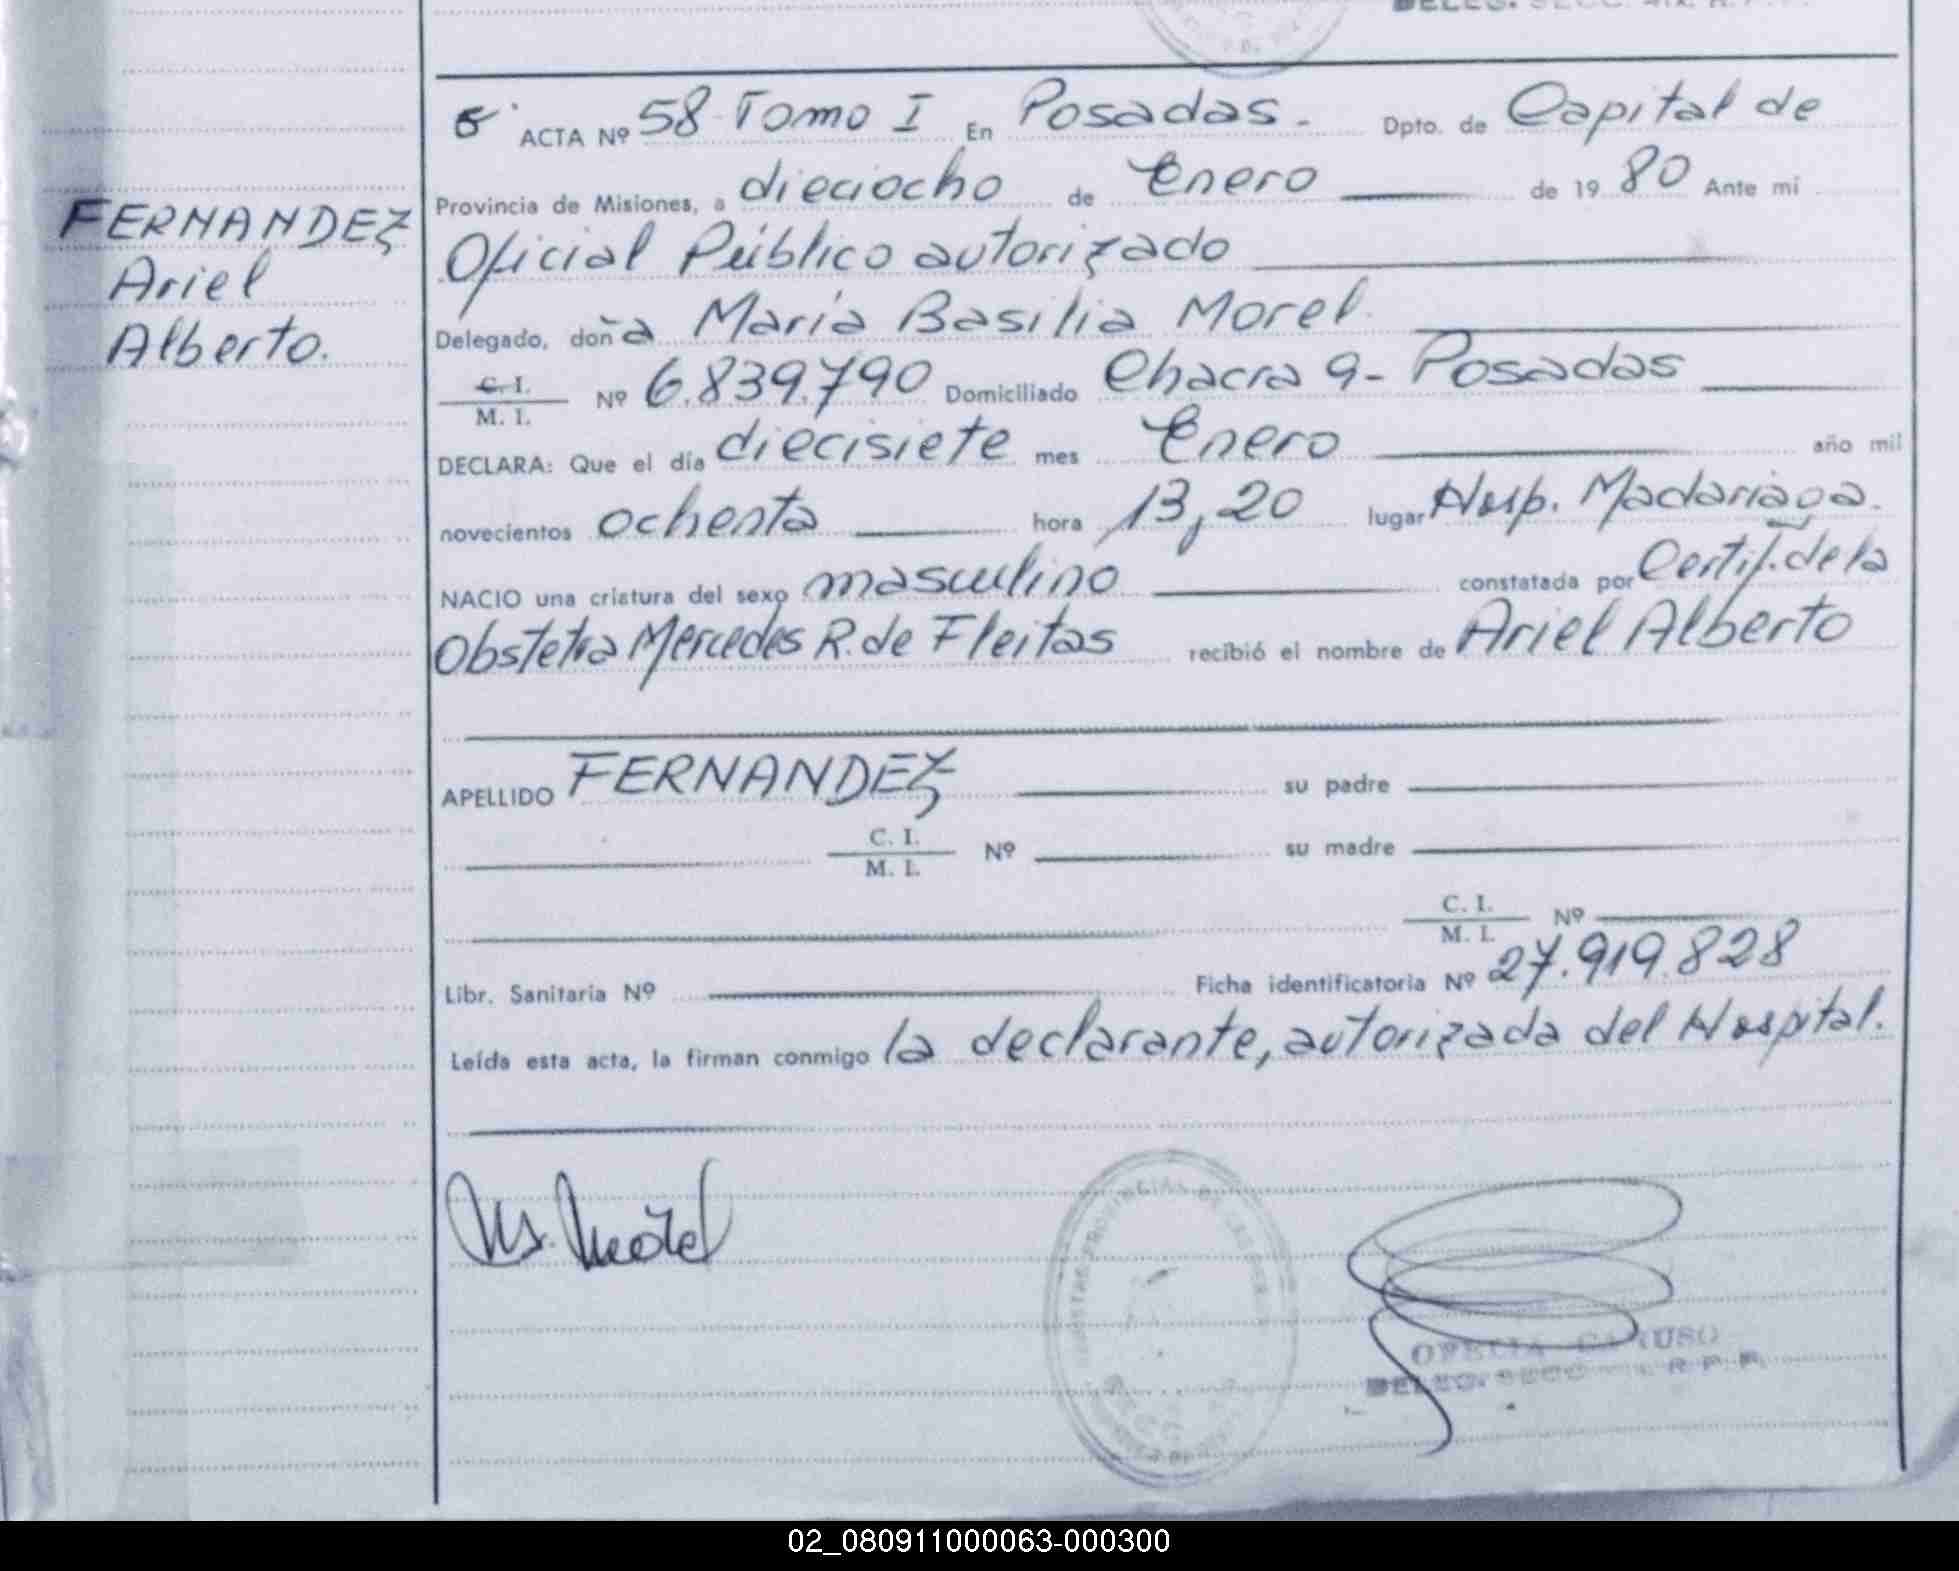 DELEG. SECC.
ACTA Nº 58 Tomo I En Posadas. Dpto. de Capital de
Provincia de Misiones, a dieciocho de Enero de 19 80 Ante mí
Oficial Público autorizado
Delegado, doña María Basilia Morel.
C. I.
M. I.
Nº 6.839.790 Domiciliado Chacra 9- Posadas
DECLARA: Que el día diecisiete mes Enero año mil
novecientos ochenta hora 13,20 lugar Hosp. Madariaga.
NACIO una criatura del sexo masculino constatada por Certif. de la
Obstetra Mercedes R. de Fleitas recibió el nombre de Ariel Alberto
APELLIDO FERNANDEZ su padre
C. I.
M. I.
Nº su madre
C. I.
M. I.
Nº
Libr. Sanitaria Nº Ficha identificatoria Nº 27.919.828
Leída esta acta, la firman conmigo la declarante, autorizada del Hospital.
FERNANDEZ
Ariel
Alberto.
M. Morel
PROVINCIAL DE LAS PERS
OFELIA CARUSO
DELEG. SECC R. P. P.
02_080911000063-000300